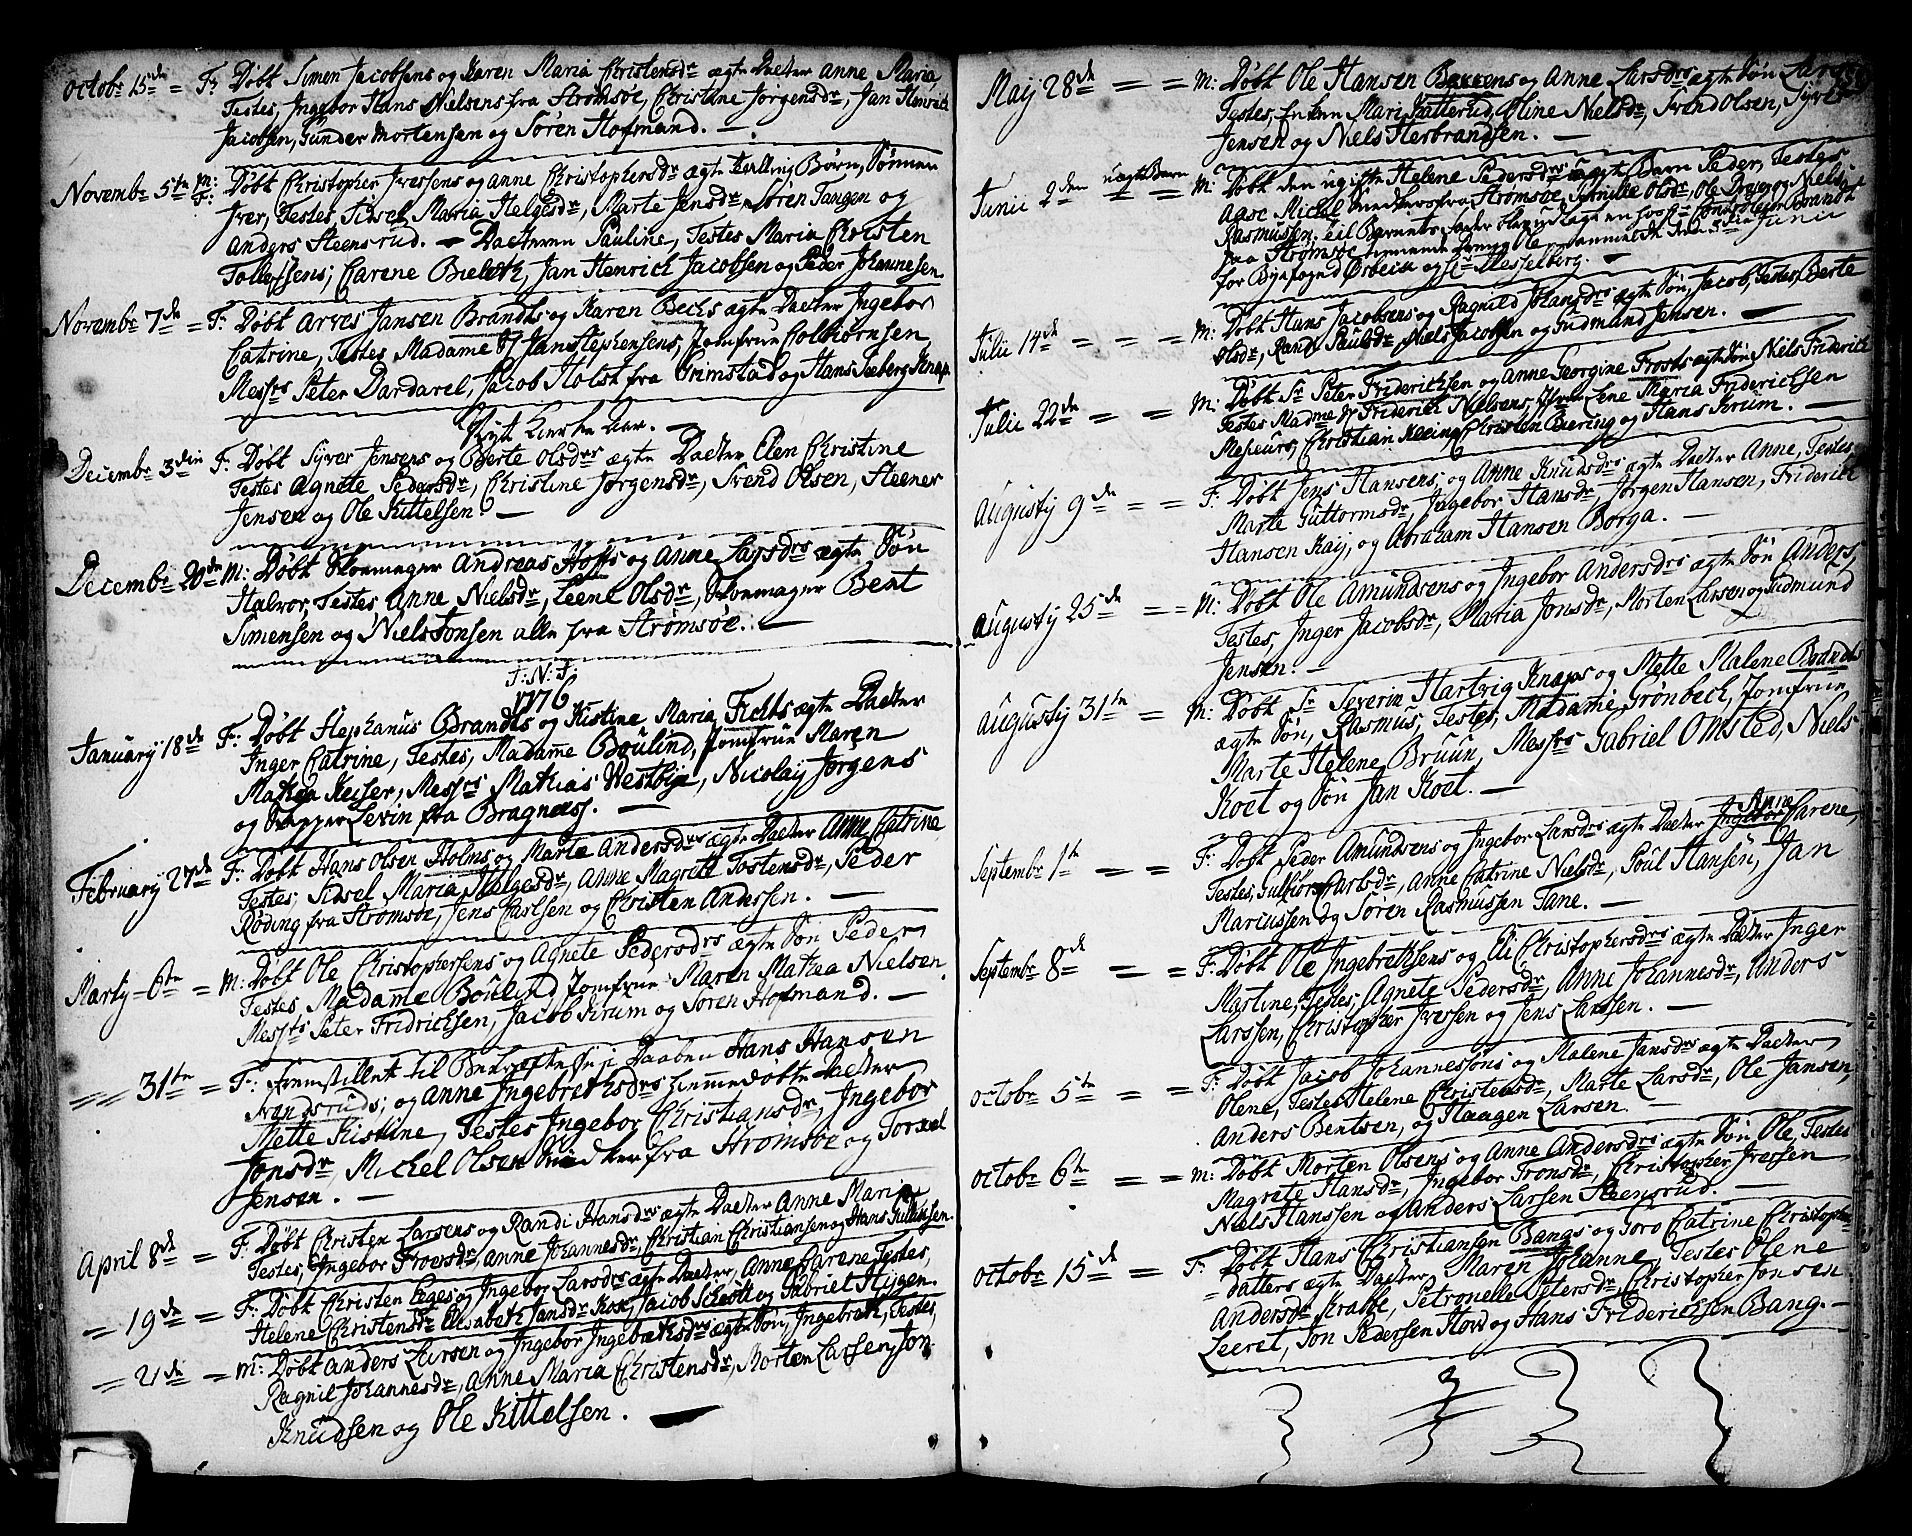 Octobr 15de = F: Døbt Simen Jacobsens og Karen Maria Christensdr ægte Datter Anne Maria,
Testes, Ingebor Hans Nielsens fra Strømsøe, Christine Jørgensdr, Jan Henrich
Jacobsen, Gunder Mortensen og Søren Hofmand. —
Novembr 5te M: F: Døbt Christopher Iversens og Anne Christophersdr ægte Tvilling Børn, Sønnen
Iver, Testes, Sidsel Maria Helgesdr, Marte Jensdr, Søren Tangen og
Anders Steensrud. — Datteren Pauline, Testes Maria Christen
Tollefsens, Carene Bieldtz, Jan Henrich Jacobsen og Peder Johannesen.
Novembr 7de = F: Døbt Arves Jansen Brandts og Karen Bechs ægte Datter Ingebor
Catrine, Testes Madame Sr Jan Stephensens, Jomfrue Colbiørnsen,
Messrs Peter Dardarel, Jacob Holst fra Grimstad og Hans Seeberg Knap.
Nyt Kirke Aar. —
Decembr 3die F: Døbt Syver Jensens og Berte Olsdrs ægte Datter Elen Christine
Testes Agnete Pedersdr, Christine Jørgensdr, Svend Olsen, Steener
Jensen og Ole Kittelsen. —
Decembr 20de M: Døbt Skomager Andreas Hoffs og Anne Larsdrs ægte Søn
Halvor, Testes Anne Nielsdr, Leene Olsdr, Skomager Bent
Simensen og Niels Jonsen alle fra Strømsøe. —
I: N: J:
1776
January 18de F: Døbt Stephanus Brandts og Kistine Maria Fichts ægte Datter
Inger Catrine, Testes, Madame Boulind, Jomfrue Maren
Mathea Keiser, Messrs Mathias Westbye, Nicolay Jørgens
og Levin fra Bragnæss. —
February 27de F: Døbt Hans Olsen Holms og Marte Andersdrs ægte Datter Anne Catrine
Testes, Sidsel Maria Helgesdr, Anne Magrett Tostensdr, Peder
Røding fra Strømsøe, Jens Carlsen og Christen Andersen. —
Marty = 6te = M: Døbt Ole Christophersens og Agnete Pedersdrs ægte Søn Peder
Testes Madame Boulind Jomfrue Maren Mathea Nielsen
Messrs Peter Fridrichsen, Jacob Krum og Søren Hofmand. —
== 31te = F: Fremstillet til Bekræftelse i Daaben Hans Hansen
Svendsruds; og Anne Ingebrethsdrs hiemmedøbte Datter
Mette Kistine, Testes Ingebor Christiansdr, Ingebor
Jonsdr, Michel Olsen fra Strømsøe og Torsteel
Jensen. —
April 8de = F: Døbt Christen Larsens og Randi Hansdrs ægte Datter Anne Maria
Testes, Ingebor Provsdr, Anne Johannesdr, Christian Christiansen og Hans Gulliksen.
= 19de = F: Døbt Christen Eeges og Ingebor Larsdrs ægte Datter, Anne Carene Testes,
Helene Christensdr Elisabeth Jansdr Kox, Jacob Schiøtt og Gabriel Stygen.
= 21de = M: Døbt Anders Larsen og Ingebor Ingebrethsdrs ægte Søn, Ingebreth, Testes,
Ragnil Johannesdr, Anne Maria Christensdr, Morten Larsen, Jon
Knudsen og Ole Kittelsen. —
May 28de = = M: Døbt Ole Hansen Berrens og Anne Larsdrs ægte Søn Lars
Testes, Enken Mari Katterud, Oline Nielsdr, Svend Olsen, Syver
Jensen og Niels Herbrandsen. —
Junii 2den uægte Barn = M: Døbt den ugifte Helene Pedersdrs uægte Barn Peder, Testes
Aase Michel Snedkers fra Strømsøe, Pernille Olsdr, Ole Dreyer og Niels
Rasmussen, til Barnets Fader blev udlagt en
paa Strømsøe den 3die Junii
for Byefogd Ørbech og Sr Hesselberg. —
Julii 14de = = = M: Døbt Hans Jacobsens og Ragnild Johansdrs ægte Søn, Jacob, Testes, Berte
Olsdr, Randi Paulsdr, Niels Jacobsen og Gudmand Jensen. —
Julii 22de = = M: Døbt Sr Peter Friderichsen og Anne Georgine Frosts ægte Søn Niels Friderich
Testes Madme Sr Friderich Nielsens, Jfrue Lene Maria Friderichsen
Messeurs, Christian Neering Christen Buering og Hans Krum. —
Augusty 9de = = F: Døbt Jens Hansens, og Anne Knudsdrs ægte Datter Anne, Testes,
Marte Guttormsdr, Ingebor Hansdr, Jørgen Hansen, Friderich
Hansen Kaij, og Abraham Hansen Borga. —
Augusty 25de = = M: Døbt Ole Amundsens og Ingebor Andersdrs ægte Søn Anders,
Testes, Inger Jacobsdr, Maria Jonsdr, Morten Larsen og Gudmund
Jensen. —
Augusty 31te = M: Døbt Sr Severin Hartvig Knaps og Mette Malene Brandts
ægte Søn, Rasmus, Testes, Madame Grønbech, Jomfrue
Marte Helene Bruun, Messrs Gabriel Omsted, Niels
Koet og Søn Jan Koet. —
Septembr 1te = = F: Døbt Peder Amundsens og Ingebor Larsdrs ægte Datter Ingebor Anne Carene,
Testes, Gulbiør Carlsdr, Anne Catrine Nielsdr, Poul Hansen, Jan
Marcussen og Søren Rasmussen Tane. —
Septembr 8de = = F: Døbt Ole Ingebrethsens og Eli Christophersdrs ægte Datter Inger
Martine, Testes, Agnete Pedersdr, Anne Johannesdr, Anders
Larssen, Christopher Iversen og Jens Larssen. —
Octobr 5te = = F: Døbt Jacob Johannessøns og Malene Jansdrs ægte Datter
Olene, Testes Helene Christensdr, Marte Larsdr, Ole Jansen,
Anders Bentsen, og Haagen Larsen. —
Octobr 6te = = M: Døbt Morten Olsens og Anne Andersdrs ægte Søn Ole, Testes
Magrete Hansdr, Ingebor Tronsdr, Christopher Iversen
Niels Hanssen og Anders Larsen Steensrud. —
Octobr 15de = F: Døbt Hans Christiansen Bangs og Goro Catrine Christoph
= datters ægte Datter, Maren Johanne, Testes Olene
Andersdr Krabbe, Petronelle Petersdr, Christopher Jonsen
Leeret, Jon Pedersen Hov og Hans Friderichsen Bang. —